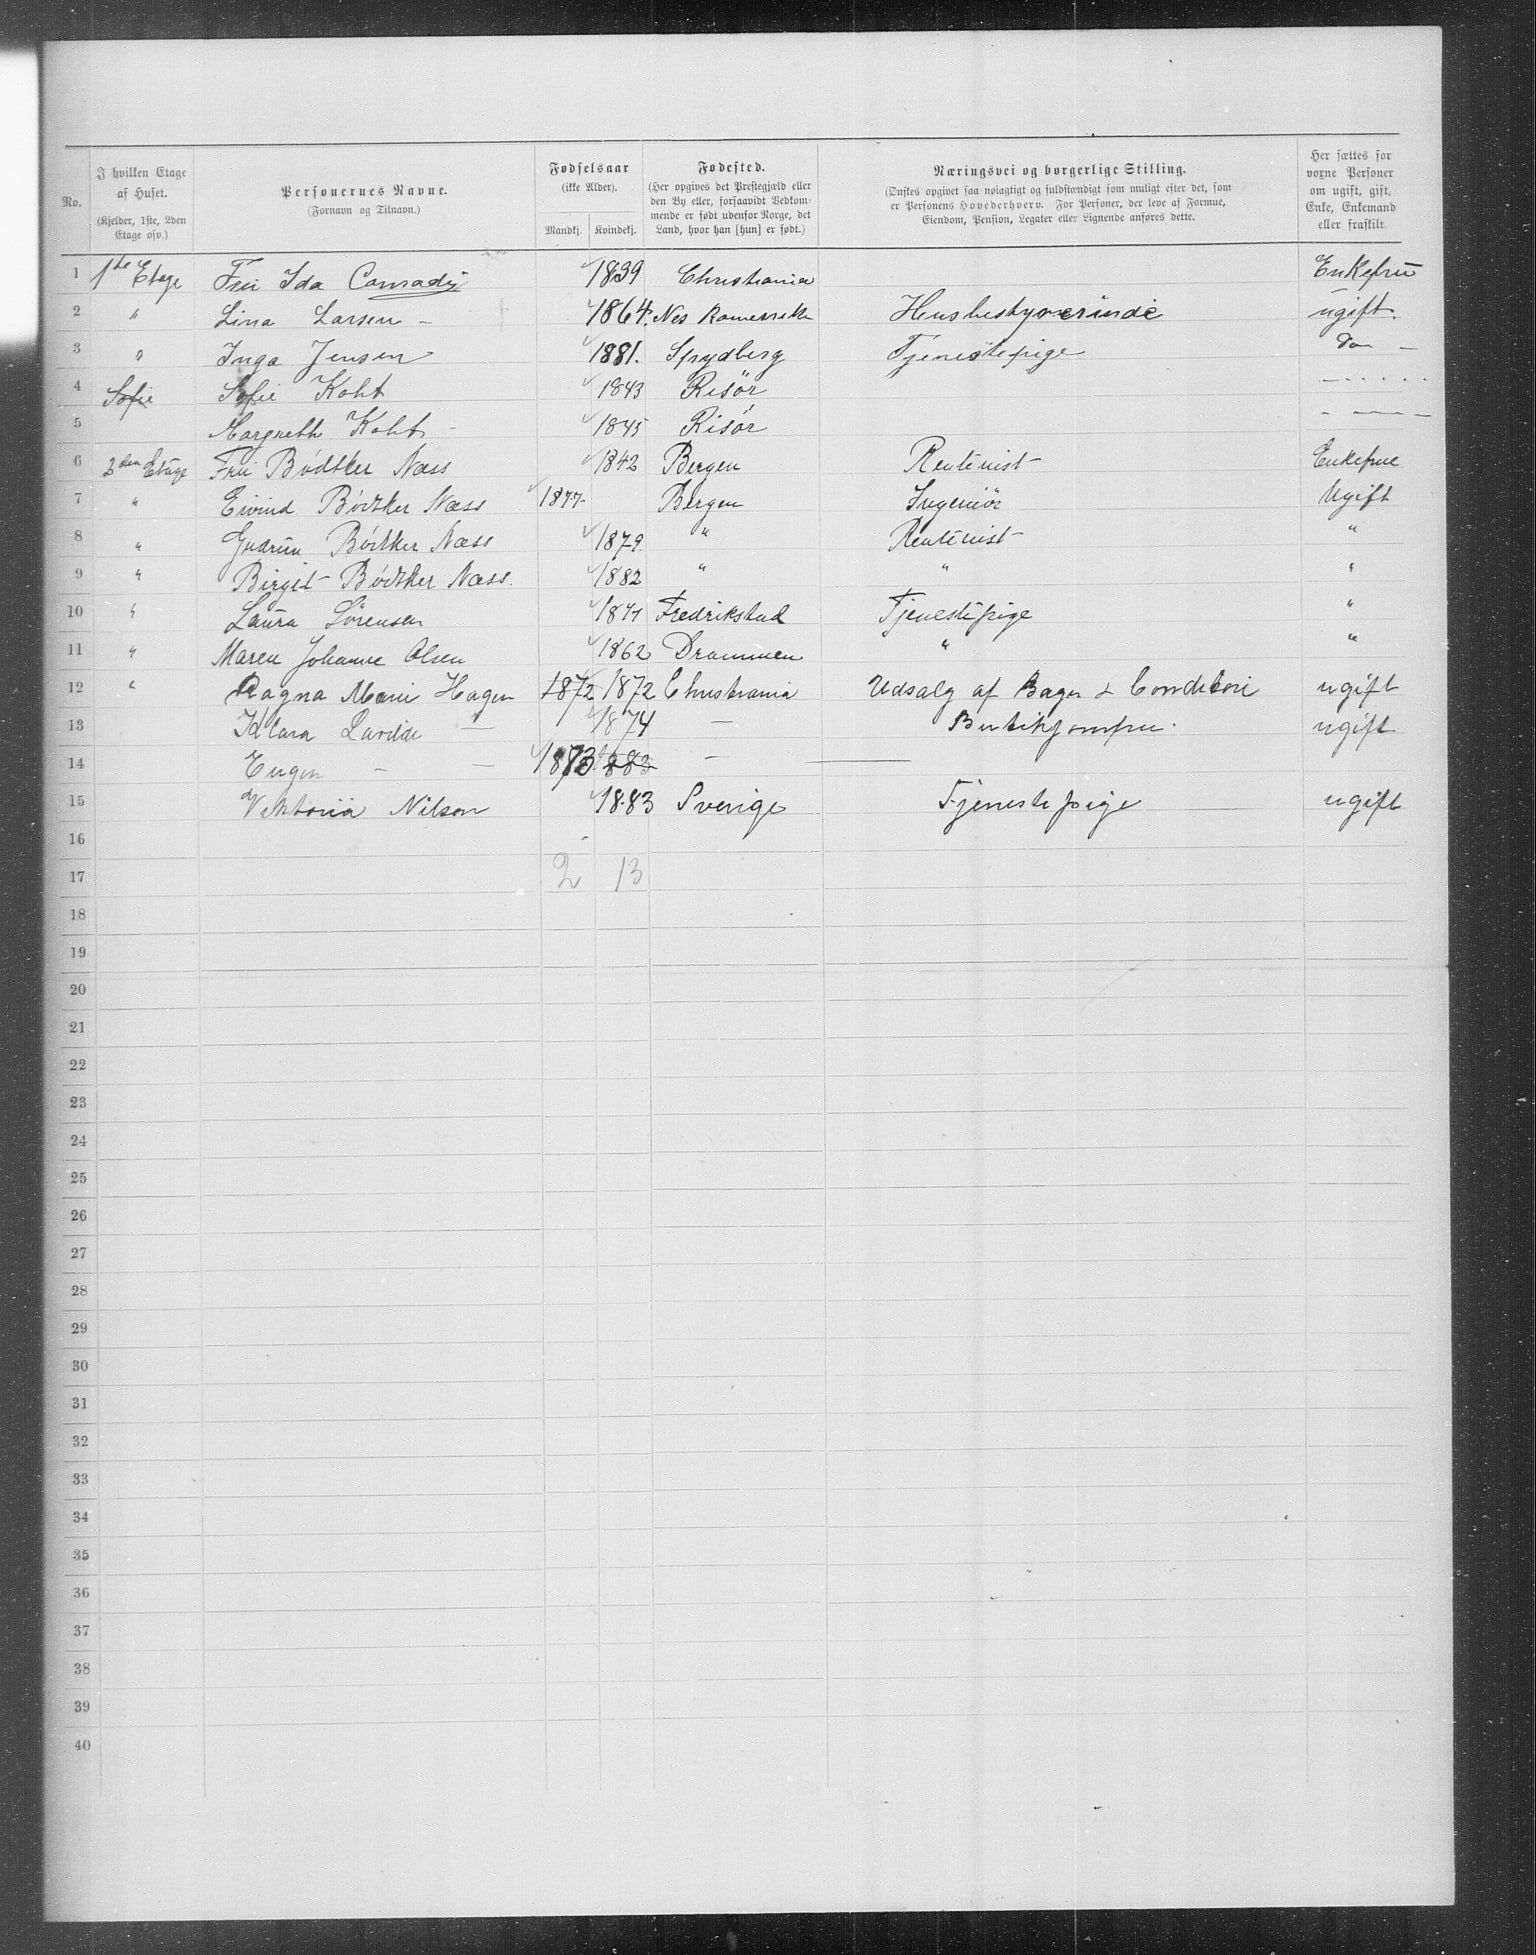 No.
I hvilken Etage af Huset.
(Kjelder, 1ste, 2den Etage osv.)
Personernes Navne.
(Fornavn og Tilnavn.)
Fødselsaar
(ikke Alder).
Mandkj. Kvindekj.
Fødested.
(Her opgives det Prestegjæld eller den By eller, forsaavidt Vedkommende er født udenfor Norge, det Land, hvor han [hun] er født.)
Næringsvei og borgerlige Stilling.
(Ønskes opgivet saa nøiagtigt og fuldstændigt som muligt efter det, som er Personens Hovederhverv. For Personer, der leve af Formue, Eiendom, Pension, Legater eller Lignende anføres dette.
Her sættes for voxne Personer om ugift, gift, Enke, Enkemand eller fraskilt.
1 1ste Etage Fru Ida Conradi 1839 Christiania Enkefru
2 " Lina Larsen - 1864. Nes Romerrike Husbestyrerinde ugift.
3 " Inga Jensen 1881. Spydberg Tjenestepige Do -
4 Sofie Sofie Koht 1843 Risör
5 Margreth Koht - 1845 Risör
6 2den Etage Fru Bödtker Næss 1842 Bergen Rentenist Enkefrue
7 " Eivind Bödtker Næss 1877 Bergen Ingeniör Ugift
8 " Gudrun Bödtker Næss 1879 " Rentenist "
9 " Birgit Bödtker Næss. 1882 " " "
10 " Laura Sörensen 1871 Fredrikstad Tjenestepige "
11 " Maren Johanne Olsen 1862 Drammen " "
12 " Ragna Marie Hagen 1872 1872 Christiania Udsalg af Bager & Conditori ugift
13 Klara — 1874 — Butikjomfru. ugift
14 Eugen - — 1873 1883 — —
15 Viktoria Nilson 1883 Sverige Tjenestepige ugift
16
17 2 13
18
19
20
21
22
23
24
25
26
27
28
29
30
31
32
33
34
35
36
37
38
39
40